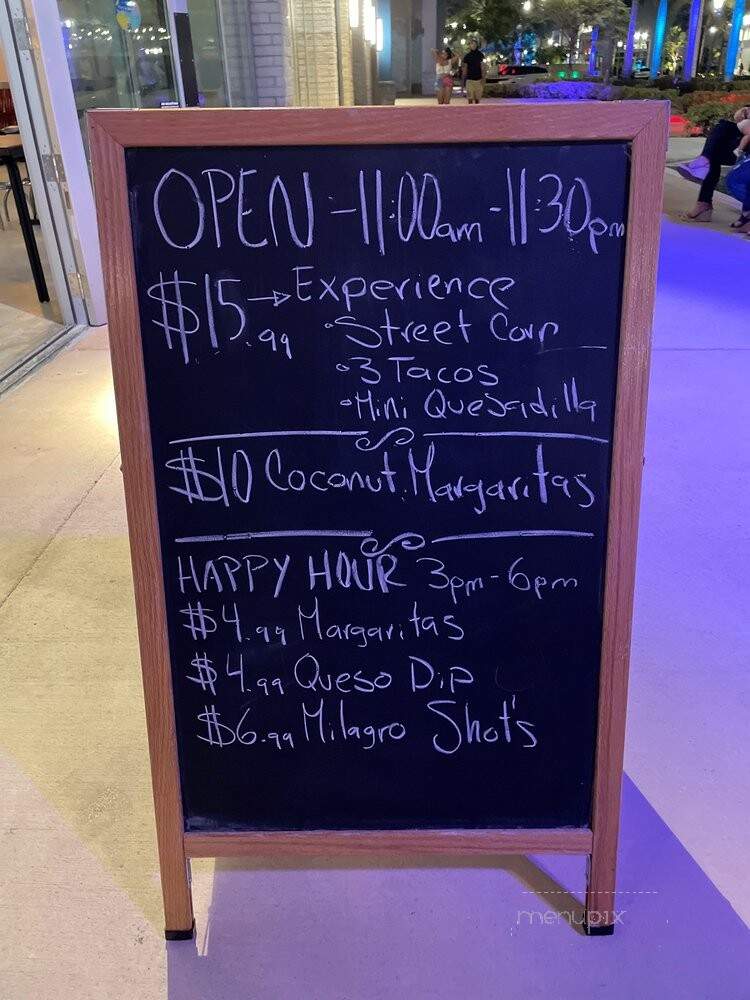 OPEN - 11:00am - 11:30pm
$15.99 → Experience
• Street Corn
• 3 Tacos
• Mini Quesadilla
$10 Coconut Margaritas
HAPPY HOUR 3pm - 6pm
$4.99 Margaritas
$4.99 Queso Dip
$6.99 Milagro Shot's
menupix